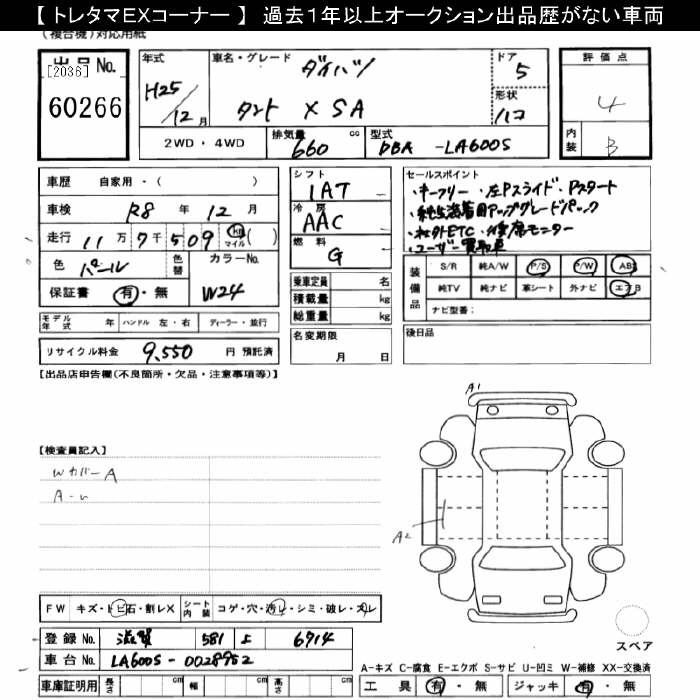 【 トレタマEXコーナー 】 過去１年以上オークション出品歴がない車両
(複合機)対応用紙
出品No.
[2036]
60266
年式
H25/12月
車名・グレード
ダイハツ
タント X SA
ドア
5
形状
ハコ
評価点
4
内装
B
2WD・4WD
排気量
660 cc
型式
DBA -LA600S
車歴 自家用・( )
車検 R8年 12月
走行 11万7千509 km マイル ( )
色 パール
色替
カラーNo.
W24
保証書 有・無
シフト
IAT
冷房
AAC
燃料
G
セールスポイント
・キーフリー ・左Pスライド・Pスタート
・純正ナビ装着用アップグレードパック
・社外ETC ・後席モニター
・ユーザー買取車
装備品
S/R 純A/W P/S P/W ABS
純TV 純ナビ 革シート 外ナビ エアB
ナビ型番:
乗車定員 名
積載量 kg
総重量 kg
モデル年式 年 ハンドル 左・右 ディーラー・並行
名変期限
月 日
後日品
リサイクル料金 9,550 円 預託済
【出品店申告欄(不良箇所・欠品・注意事項等)】
A1
【検査員記入】
WカバーA
A-U
A2
FW キズ・トビ石・割レX
シート内装 コゲ・穴・汚レ・シミ・破レ・スレ
登録 No. 滋賀 581 よ 6714
車台 No. LA600S-0028952
スペア
A-キズ C-腐食 E-エクボ S-サビ U-凹ミ W-補修 XX-交換済
車庫証明用 長さ cm 幅 cm 高さ cm
工具 有・無 ジャッキ 有・無